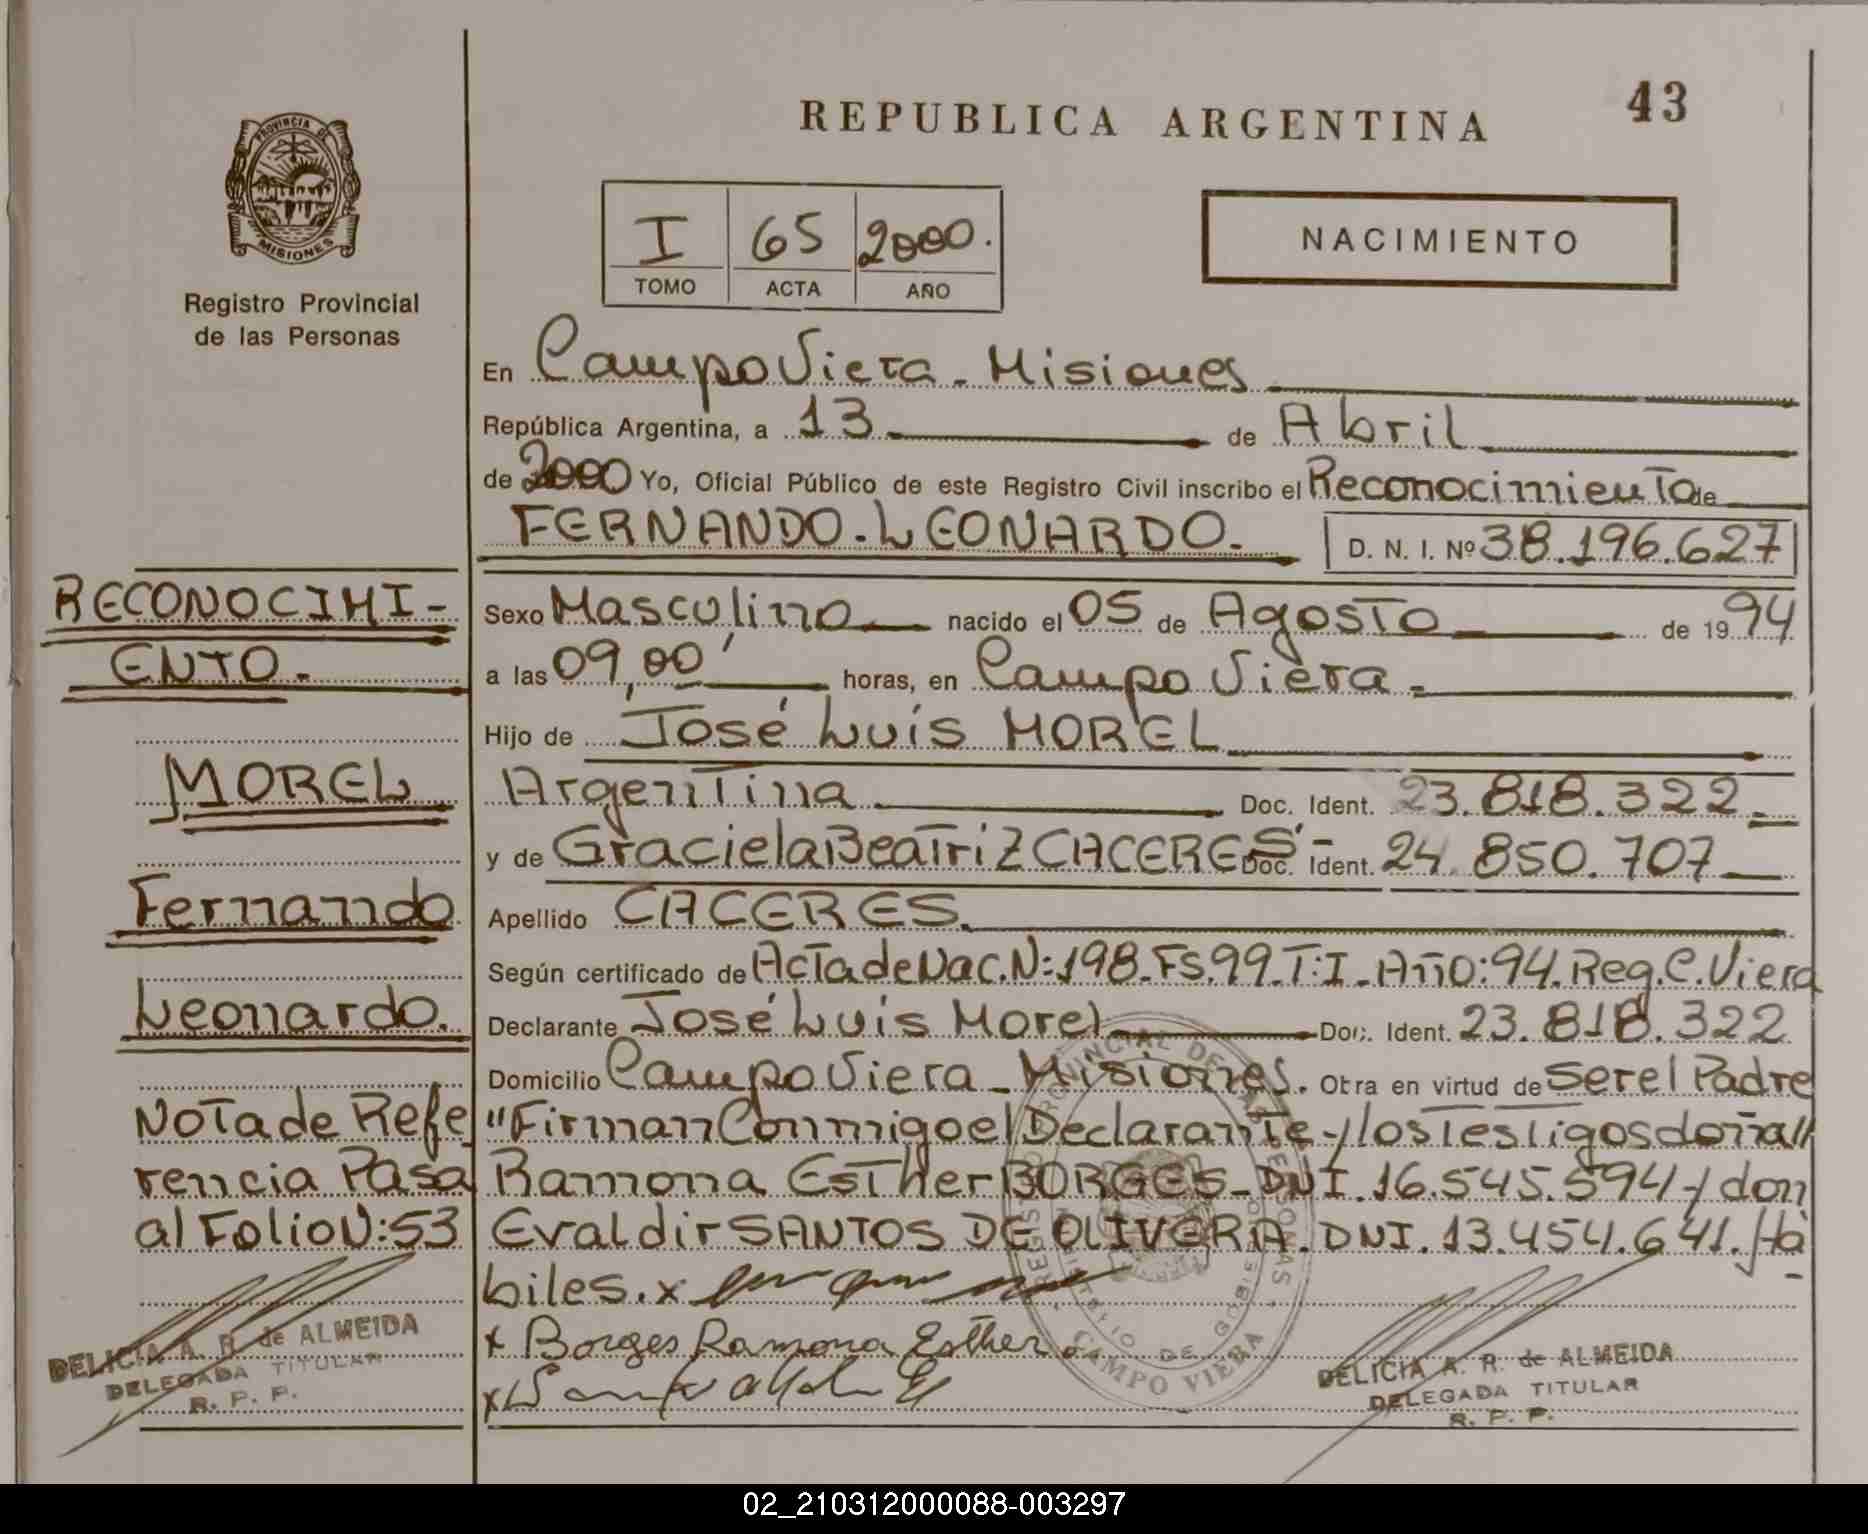 43
REPUBLICA ARGENTINA
PROVINCIA DE
MISIONES
Registro Provincial
de las Personas
I 65 2000.
TOMO ACTA AÑO
NACIMIENTO
En Campo Viera - Misiones
República Argentina, a 13 de Abril
de 2000 Yo, Oficial Público de este Registro Civil inscribo el Reconocimiento de
FERNANDO. LEONARDO. D. N. I. Nº 38.196.627
Sexo Masculino nacido el 05 de Agosto de 1994
a las 09,00 horas, en Campo Viera.
Hijo de José Luis MOREL
Argentina Doc. Ident. 23.818.322
y de Graciela Beatriz CACERES - Doc. Ident. 24.850.707
Apellido CACERES.
Según certificado de Acta de Nac. N: 198. Fs. 99. T: I. Año: 94. Reg. C. Viera
Declarante José Luis Morel Doc. Ident. 23.818.322
Domicilio Campo Viera - Misiones. Otra en virtud de Ser el Padre
"Firman Conmigo el Declarante y los Testigos doña"
Ramona Esther BORGES - DNI. 16.545.594 y don
Evaldir SANTOS DE OLIVERA. DNI. 13.454.641. Há
biles. x
x Borges Ramona Esther.
x
RECONOCIMI-
ENTO.
MOREL
Fernando
Leonardo.
Nota de Refe
rencia Pasa
al Folio N: 53
DELICIA A. R. de ALMEIDA
DELEGADA TITULAR
R. P. P.
REGISTRO PROVINCIAL DE LAS PERSONAS
MINISTERIO DE GOBIERNO
CAMPO VIERA
DELICIA A. R. de ALMEIDA
DELEGADA TITULAR
R. P. P.
02_210312000088-003297